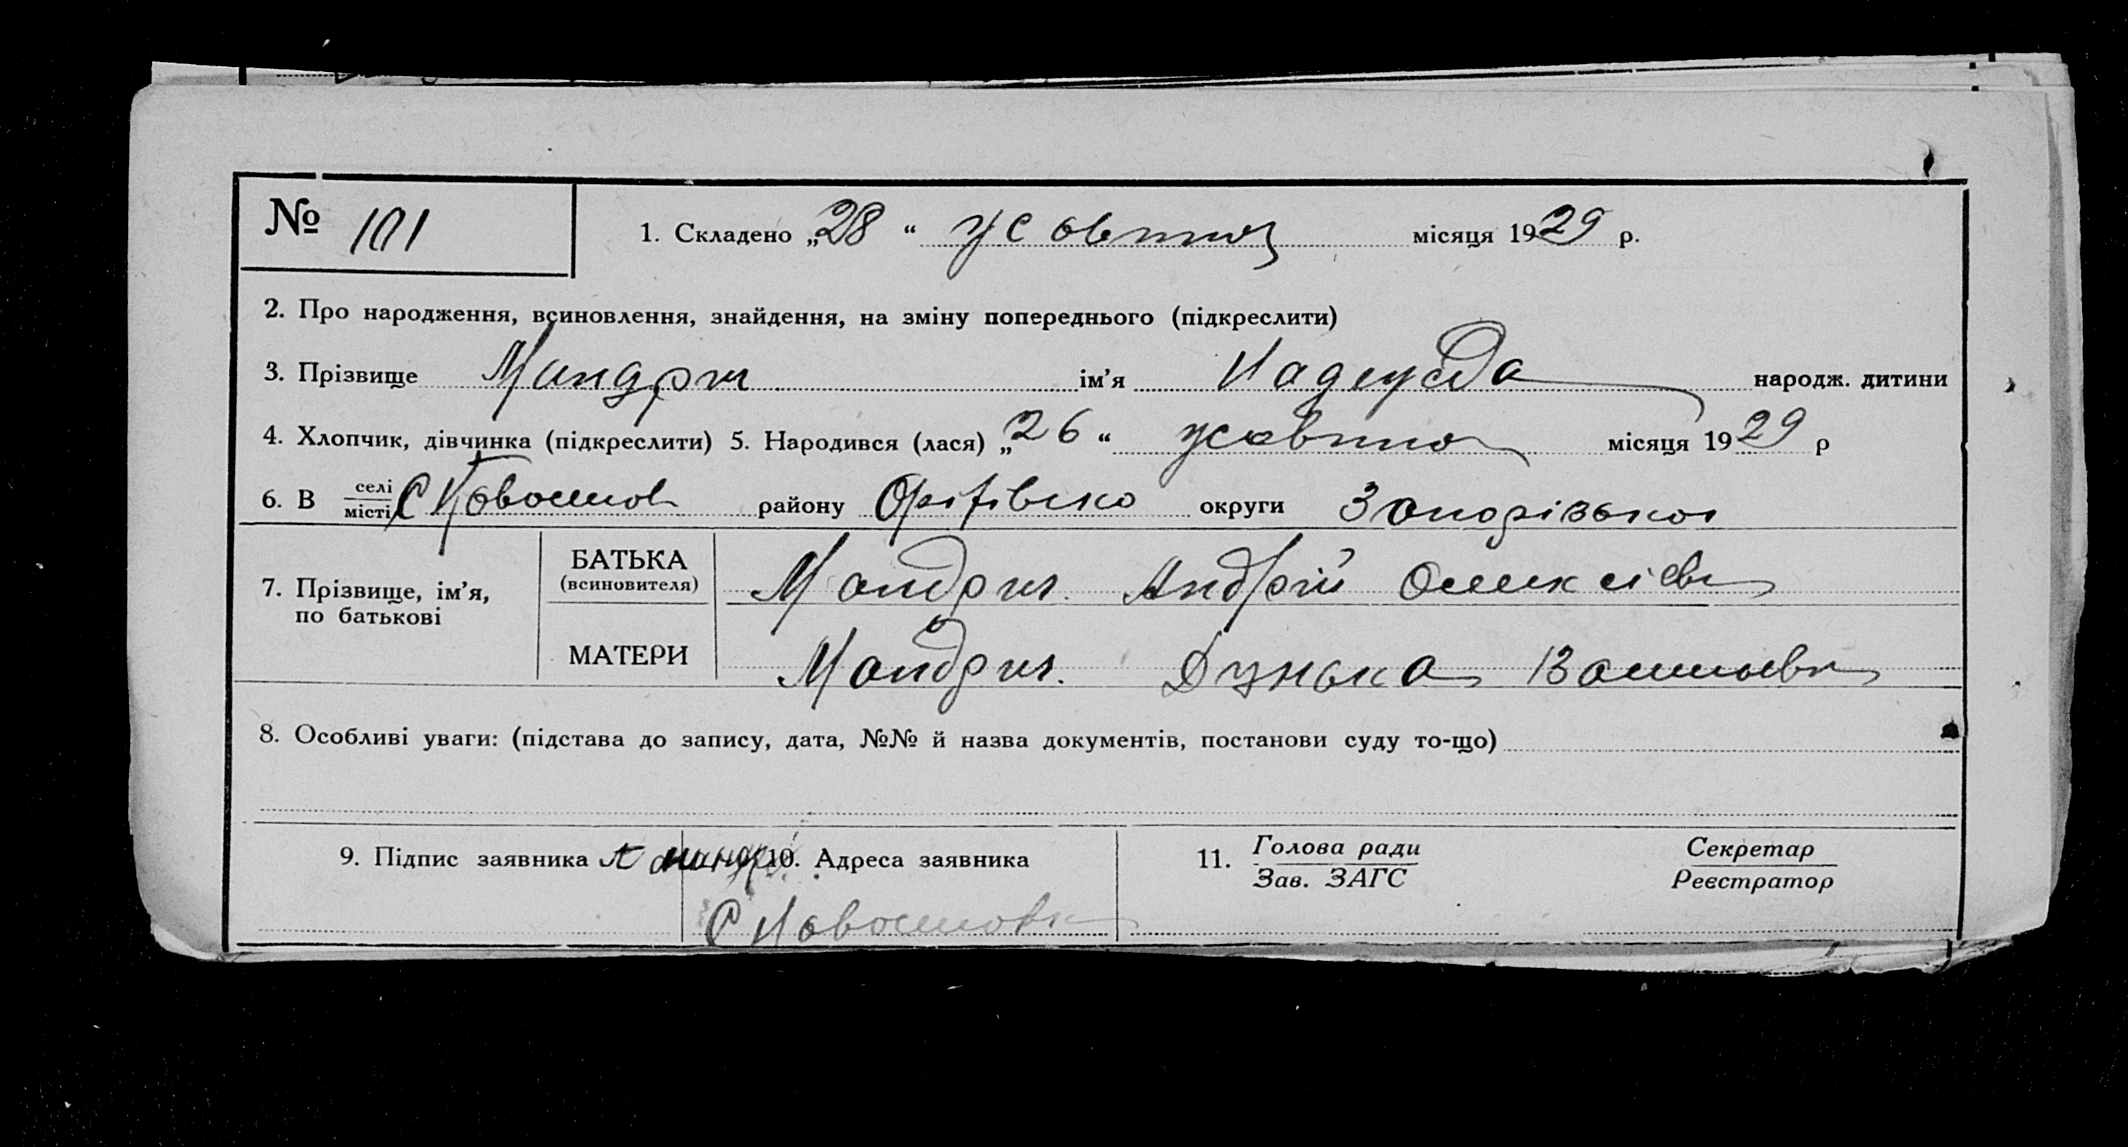 № 101
1. Складено „28“ жовтня місяця 1929 р.
2. Про народження, всиновлення, знайдення, на зміну попереднього (підкреслити)
3. Прізвище Мандрич ім’я Надежда народж. дитини
4. Хлопчик, дівчинка (підкреслити) 5. Народився (лася) „26“ жовтня місяця 1929 р
6. В селі місті району округи Запорізької
7. Прізвище, ім’я, по батькові
БАТЬКА (всиновителя) Мандрич Андрій Олексієв
МАТЕРИ Мандрич Дунька
8. Особливі уваги: (підстава до запису, дата, №№ й назва документів, постанови суду то-що)
9. Підпис заявника
10. Адреса заявника
11. Голова ради
Зав. ЗАГС
Секретар
Реєстратор